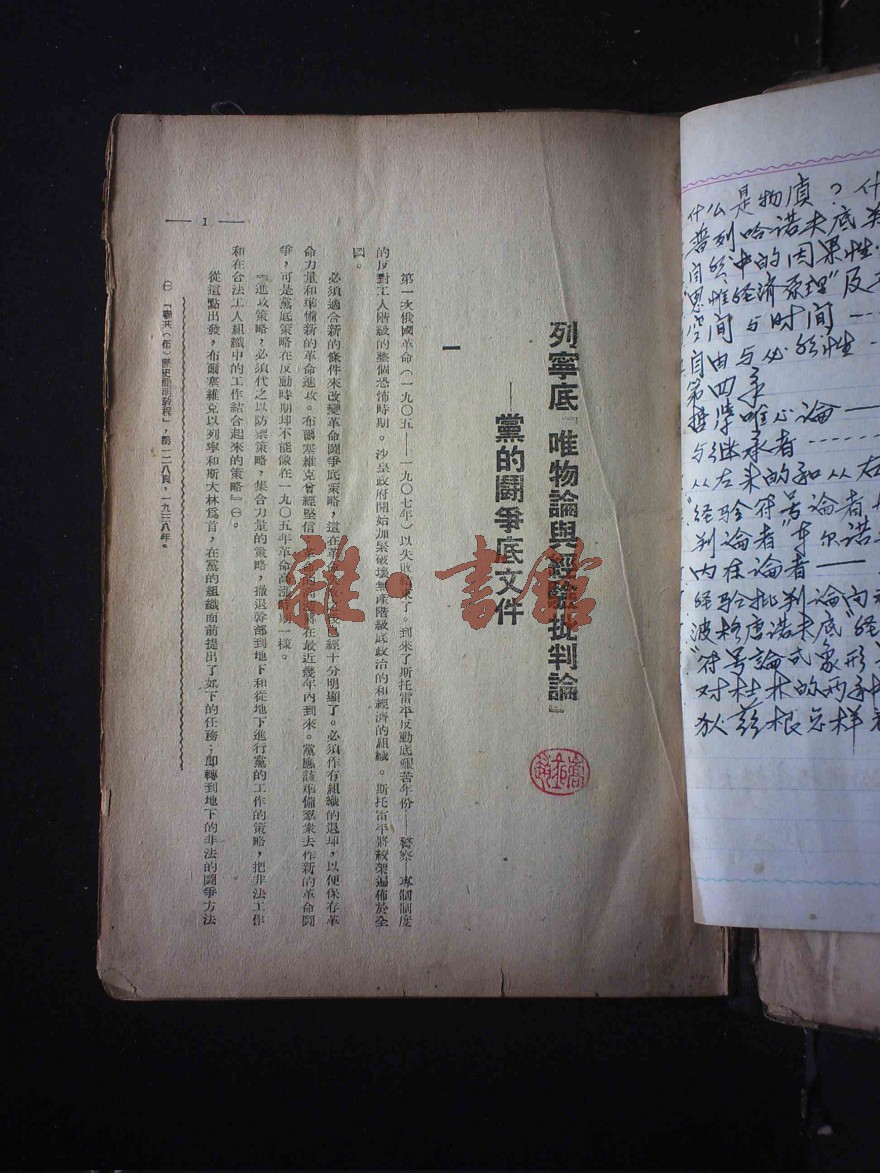 列寧底『唯物論與經驗批判論』
——黨的鬪爭底文件
一
第一次俄國革命（一九〇五——一九〇七年）以失敗
了。到來了斯托雷平反動底艱苦年份——警察 專制制度
的反對工人階級的整個恐怖時期。沙皇政府開始加緊破壞無產階級底政治的和經濟的組織。斯托雷平將絞架遍佈於全
國。
必須適合新的條件來改變革命鬪爭底策略，這在
已經十分明顯了。必須作有組織的退却，以便保存革
命力量和準備新的革命進攻。布爾塞維克曾經堅信
將在最近幾年內到來。黨應該準備羣衆去作新的革命鬪
爭，可是黨底策略在反動時期却不能像在一九〇五年革命高漲時期一樣。
『進攻策略，必須代之以防禦策略，集合力量的策略，撤退幹部到地下和從地下進行黨的工作的策略，把非法工作
和在合法工人組織中的工作結合起來的策略』㊀。
從這點出發，布爾塞維克以列寧和斯大林爲首，在黨的組織面前提出了如下的任務；卽轉到地下的非法的鬪爭方法
㊀ 『聯共（布）歷史簡明教程』，第一二八頁，一九三八年。
— 1 —
雜·書館
什么是物質？什
普列哈诺夫底
自然中的因果性
"思惟经济原理"及
空间与时间----
自由与必然性--
第四章
哲学唯心论——
与继承者------
从左来的和从右
"经验符号论者
判论者 韦尔诺
内在论者——
经验批判论向
波格唐诺夫底"经
"符号論"或象形
对杜林的两种
狄兹根怎样